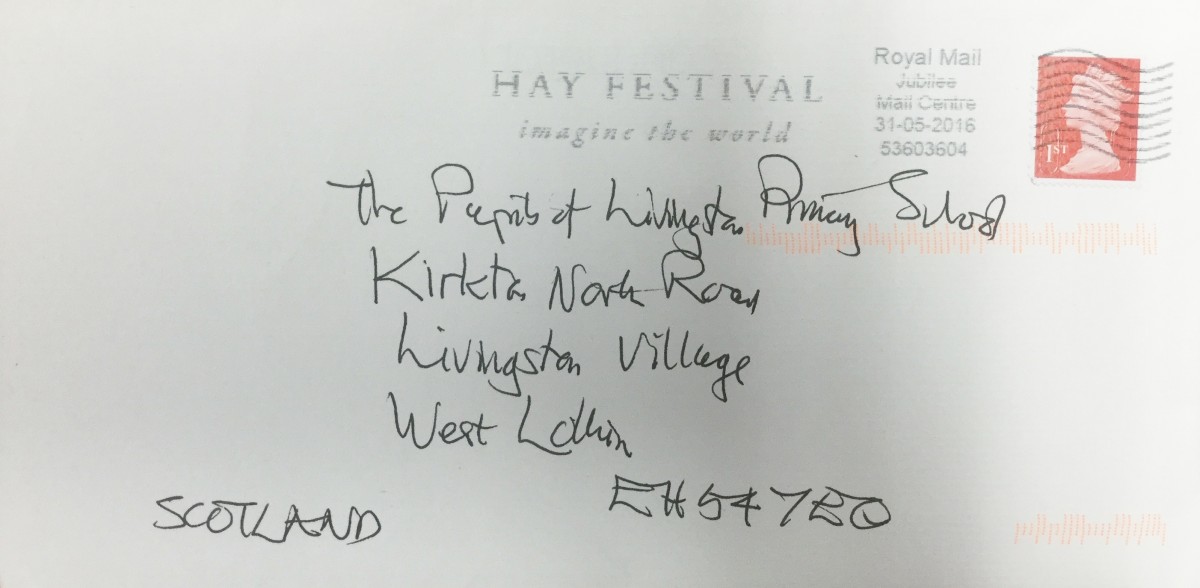 HAY FESTIVAL
imagine the world
Royal Mail
Jubilee
Mail Centre
31-05-2016
53603604
1ST
The Pupils of Livingston Primary School
Kirkton North Road
Livingston Village
West Lothian
EH54 7EQ
SCOTLAND